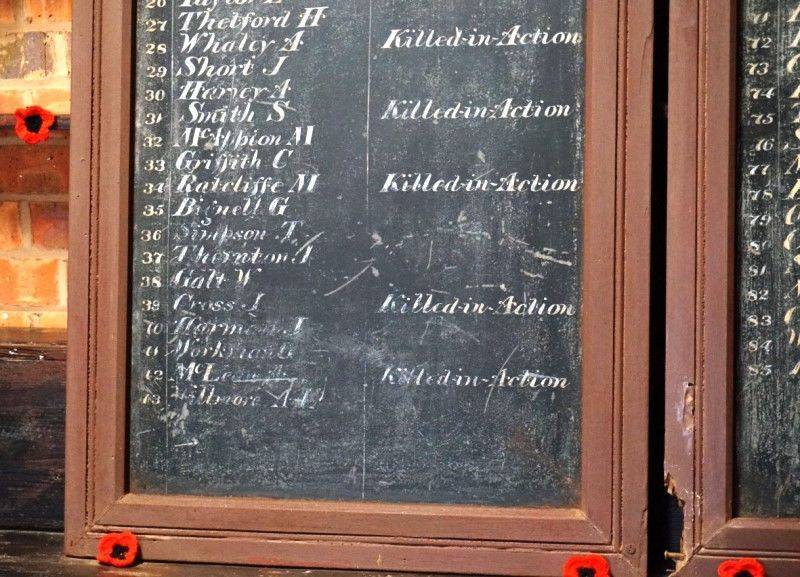 26 Taylor E
27 Thetford H
28 Whaley A Killed-in-Action
29 Short J
30 Harvey A
31 Smith S Killed-in-Action
32 M
33 Griffith C
34 Ratcliffe M Killed-in-Action
35 Bignell G
36 Simpson T
37 Thornton J
38 Galt W
39 Cross J Killed-in-Action
40 Harmon J
41
42 Killed-in-Action
43 Fillmore
71
72
73
74
75
76
77
78
79
80
81
82
83
84
85